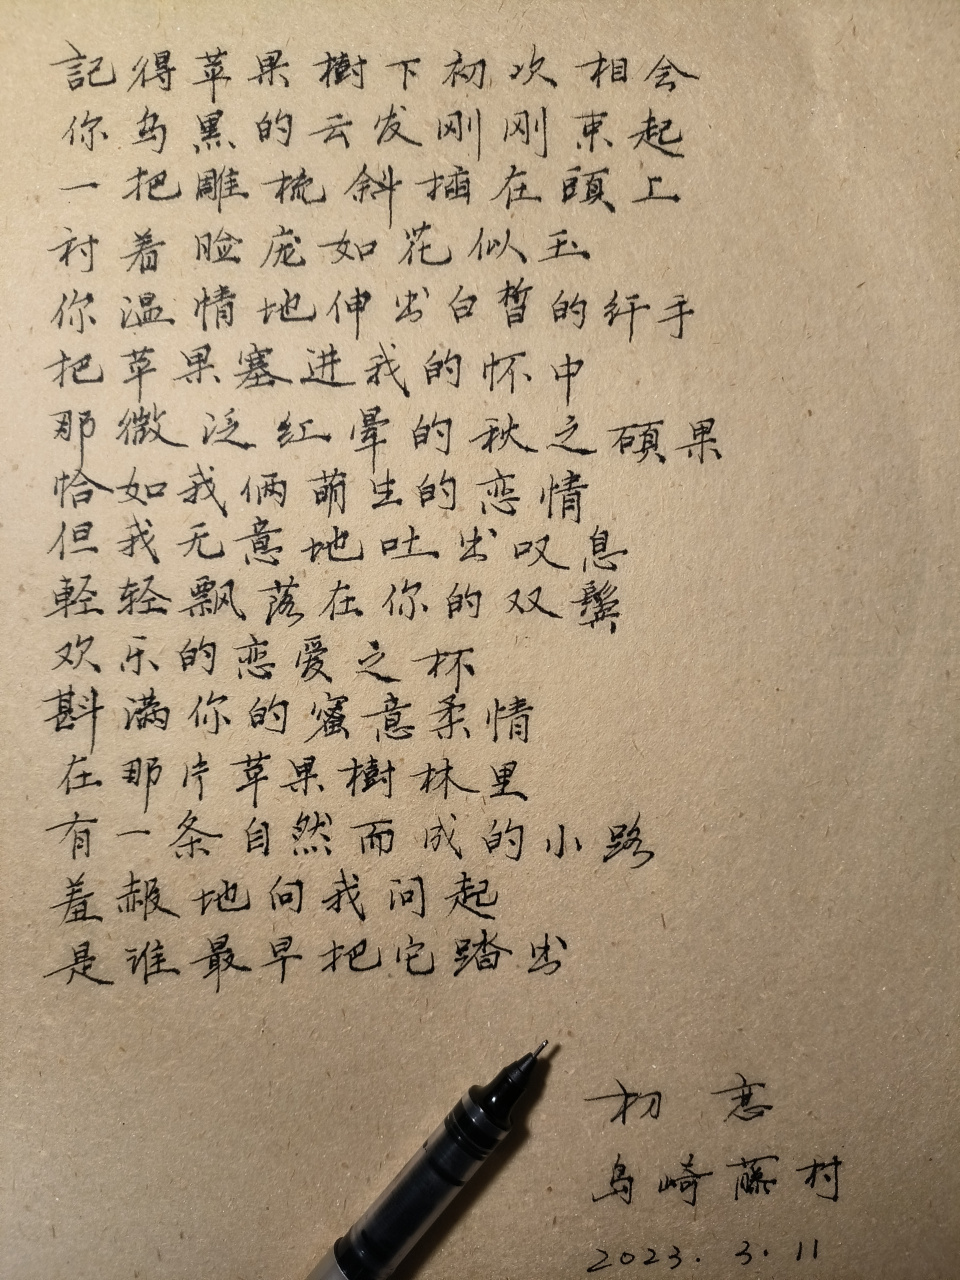 記得苹果樹下初次相会
你乌黑的云发刚刚束起
一把雕梳斜插在頭上
衬着脸庞如花似玉
你温情地伸出白皙的纤手
把苹果塞进我的怀中
那微泛红晕的秋之硕果
恰如我俩萌生的恋情
但我无意地吐出叹息
輕轻飘落在你的双鬓
欢乐的恋爱之杯
斟满你的蜜意柔情
在那片苹果樹林里
有一条自然而成的小路
羞赧地向我问起
是谁最早把它踏出
初恋
岛崎藤村
2023.3.11